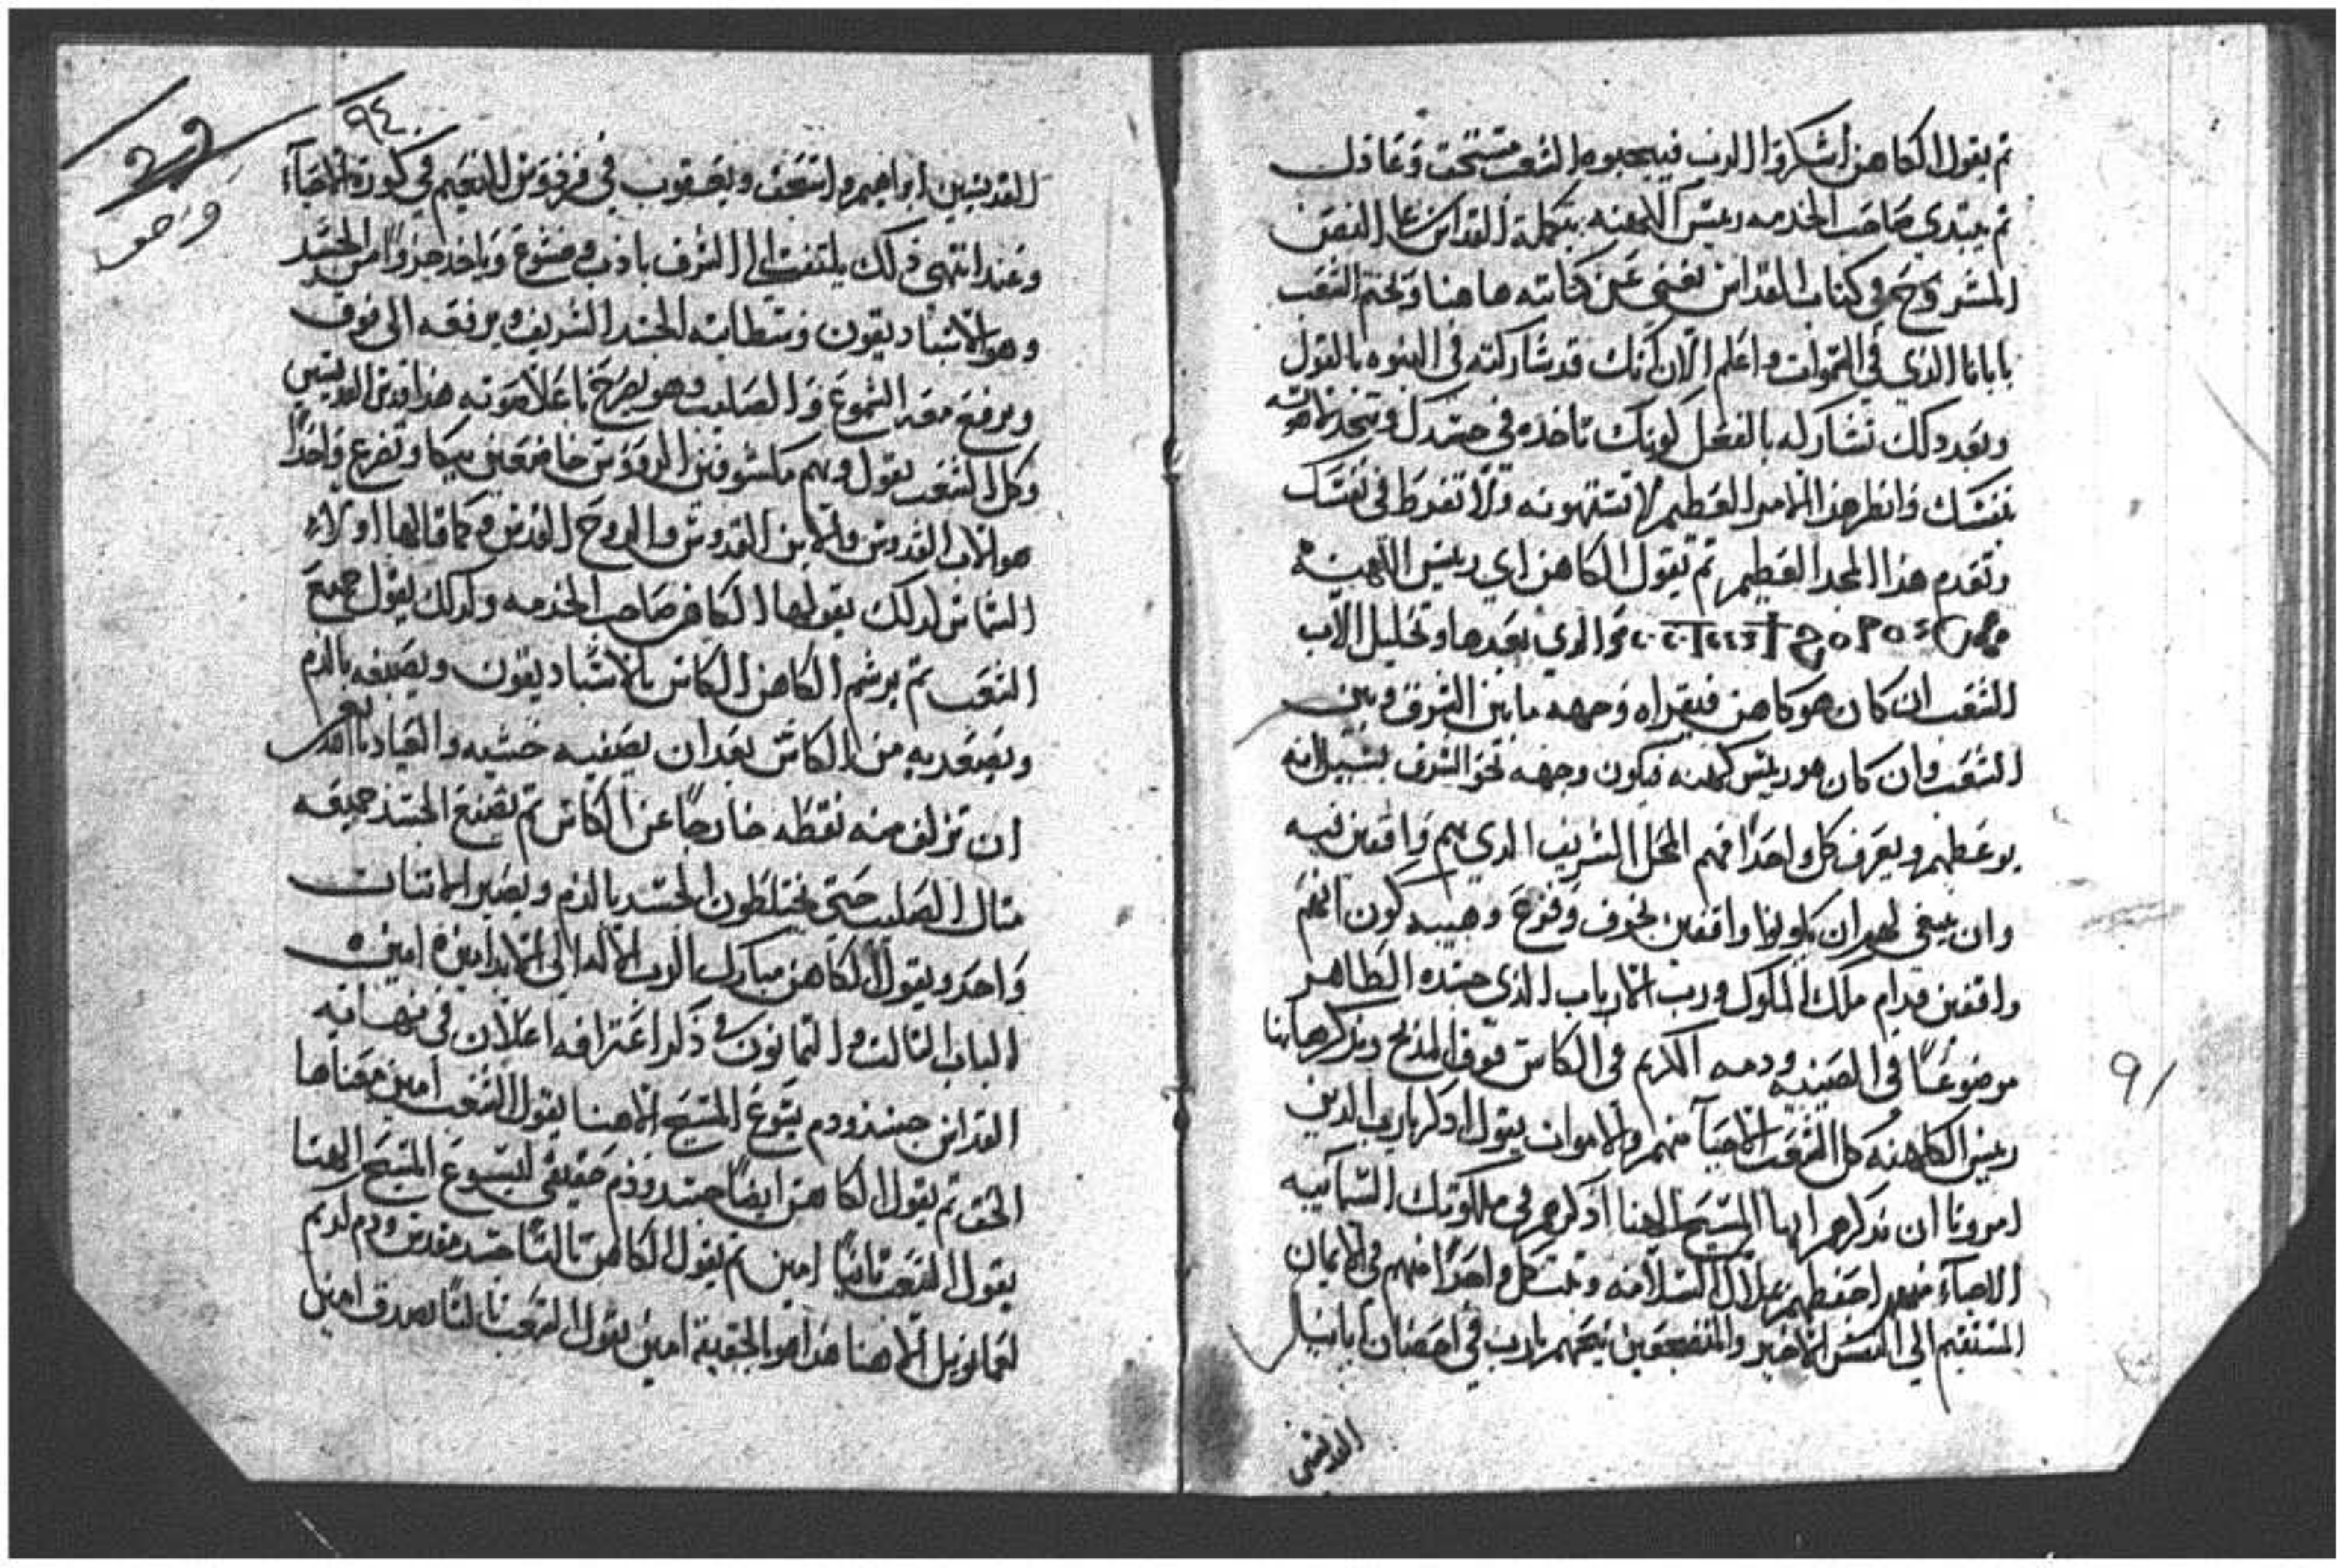 ثم يقول الكاهن اشكروا الرب فيجيبوه الشعب مستحق وعادل
ثم يبتدي صاحب الخدمه رييس الكهنه بتكملة القداس علي النص
المشروح في كتاب القداس تغني عن كتابته هاهنا وتختم الشعب
باباناالذي في السموات واعلم الان كأنك قد شاركته في البنوه بالقول
وبعد دلك تشاركه بالفعل كونك تاخذه في جسدك وتتحد
بنفسك فانظر هذا الامر العظيم لا تستهونه ولا تفرط في نفسك
وتعدم هذا المجد العظيم ثم يقول الكاهن اي رييس الكهنه
والذي بعدها وتحليل الاب
الشعب ان كان هو كاهن فيقراه وجهه ما بين الشرق وبين
الشعب وان كان هو رييس كهنه فيكون وجهه نحو الشرق بسبيل انه
يوعظهم ويعرف كل واحدا منهم المحل الشريف الدي هم واقفين فيه
وان ينبغي لهم ان يكونوا واقفين بخوف وفزع وهيبه كون انهم
واقفين قدام ملك الملوك ورب الارباب الذي جسده الطاهر
موضوعًا في الصينيه ودمه الكريم في الكاس فوق المذبح ويذكر هاهنا
رييس الكاهنه كل الشعب الاحيآ منهم والاموات يقول ادكر يارب الدين
امرونا ان ندكرهم ايها المسيح الهنا اذكرهم في ملكوتك السمآييه
الاحيآء منهم احفظهم بملاك السلامه وتبت كل واحدًا منهم في الايمان
المستقيم الي النفس الاخير والمضجعين نيحهم يارب في احضان اباينا
القديسين
٩١
٩٤
القديسين ابراهيم واسحق ويعقوب في فردوس النعيم في كورة الاحيآء
وعند انتهي ذلك يلتفت الي الشرق بادب وخشوع وياخد جزوًا من الجسد
وهو الاسباديقون وسطانيه الجسد الشريف يرفعه الي فوق
ويرفع معه الشموع والصليب وهو يصرخ باعلا صوته هذا قدس القديسين
وكل الشعب يقول وهم مكشوفين الرووس خاضعين ببكا وتضرع واحدًا
هو الاب القدوس والابن القدوس والروح القدس وكما قالها اولاً
الشماس لدلك يقولها الكاهن صاحب الخدمه وكدلك يقول جميع
الشعب ثم يرشم الكاهن الكاس بالاسباديقون ويصبغه بالدم
ويصعد به من الكاس بعد ان يصفيه خشيه والعياد بالله
ان تزلف منه نقطه خارجًا عن الكاس ثم يصبغ الجسد جميعه
متال الصليب حتي يختلطون الجسد بالدم ويصير الاتنان
واحد ويقول الكاهن مبارك الرب الاله الي الابد امين امين
الباب التالت والتمانون في ذكر اعترافه اعلان في نهايه
القداس جسد ودم يسوع المسيح الاهنا يقول الشعب امين معناها
الحق ثم يقول الكاهن ايضًا جسد ودم حقيقي ليسوع المسيح الهنا
يقول الشعب تانيًا امين ثم يقول الكاهن تالتًا جسد مقدس ودم كريم
لعمانويل الاهنا هذا هو بالحقيقه امين يقول الشعب تالتًا بصدق امين